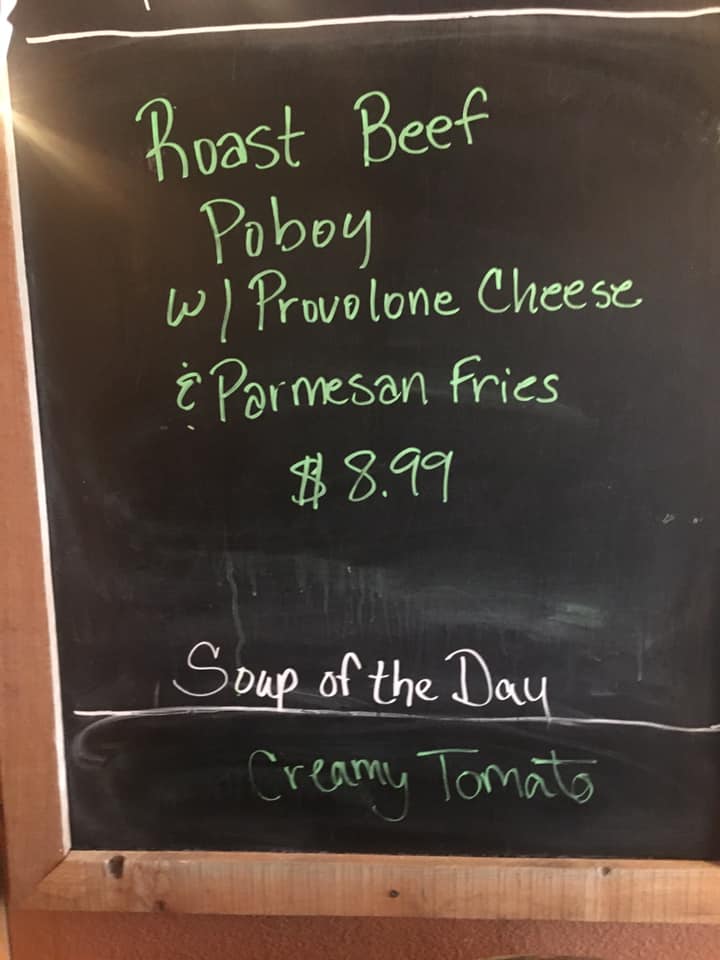 Roast Beef
Poboy
w/ Provolone Cheese
& Parmesan Fries
$8.99
Soup of the Day
Creamy Tomato